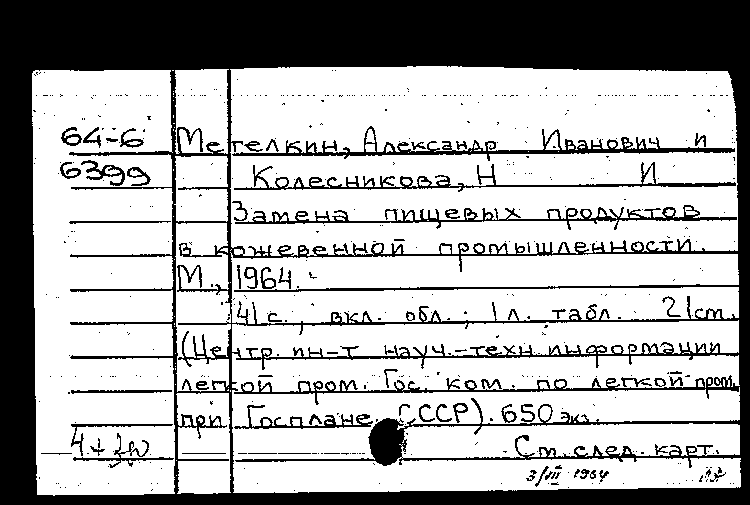 64-6 Метелкин, Александр Иванович и
6399 Колесникова, Н И
Замена пищевых продуктов
в кожевенной промышленности.
М., 1964.
41 с., вкл. обл.; 1 л. табл. 21 см.
(Центр. ин-т науч.-техн. информации
легкой пром. Гос. ком. по легкой пром.
при Госплане СССР). 650 экз.
См. след. карт.
3/VII 1964